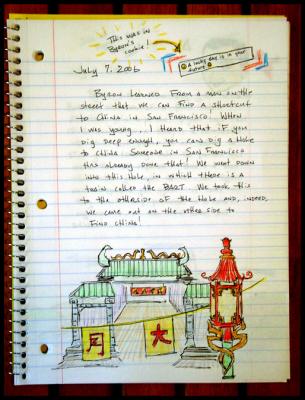 This was in
Byron's
cookie!
A lucky day is in your
future
July 7, 2006
Byron learned from a man on the
street that we can find a shortcut
to China in San Francisco! When
I was young, I heard that if you
dig deep enough, you can dig a hole
to China. Someone in San Francisco
has already done that! We went down
into this hole, in which there is a
train called the BART. We took this
to the otherside of the hole and, indeed,
we came out on the other side to
find China!
月
大